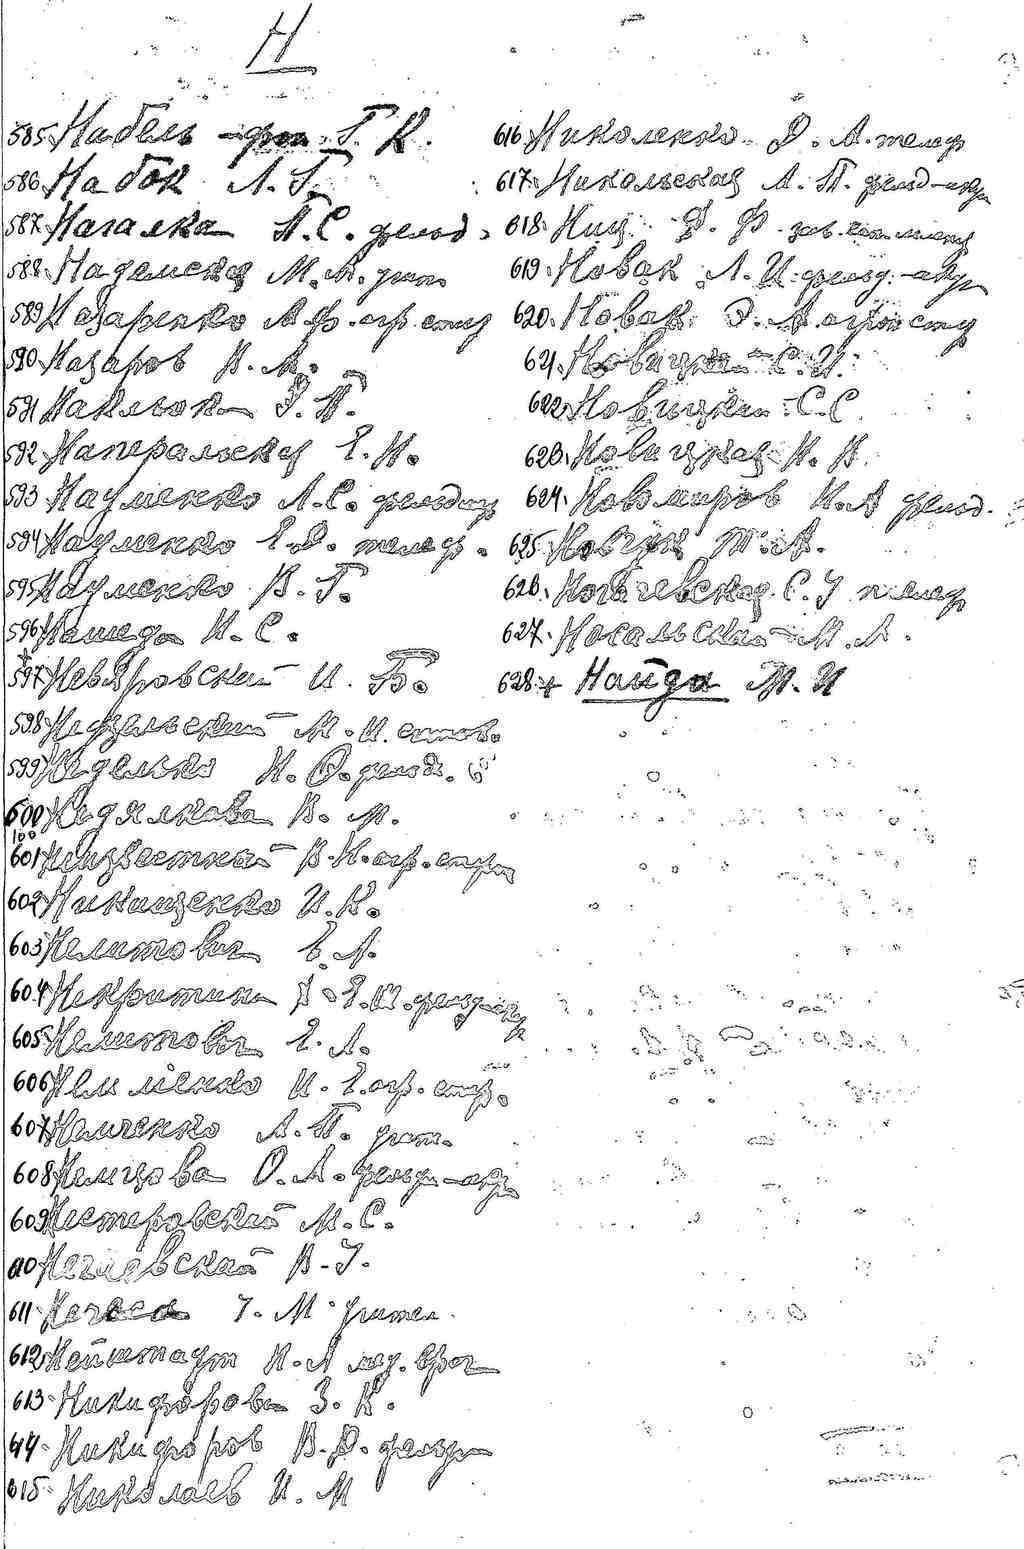 Н
585. Набель - фон. Г. К.
586. Набок Л. Г.
587. Нагалка П. С. фельд.
588. Надемская М. М. учит.
589. Назаренко А. Ф. агр. стц
590. Назаров В. А.
591 Накльок Э. П.
592. Наперальская Е. Н.
593 Науменко Л. С. фельдшер
594 Науменко Е. Д. телеф.
595 Науменко В. Г.
596 Нашеда И. С.
+
597 Невяровский И. Б.
598 Недзельский М. И. статов.
599 Неделько Н. О. фельд.
600 Недялкова В. М.
100
601 Неизвестная В. Н. агр. стц
602 Никищенко И. К.
603 Нелитович Е. А.
604 Некритин Е. Ш. фельд-акуш
605 Нелитович Е. А.
606 И. Е. агр. стар.
607 Немченко А. П. учит.
608 Немцова О. А. фельд-акуш
609 Нестеровский М. С.
610 Нечаевская В. У.
611 М. учител.
612 Нейштадт Н. А мед. врач
613 Никифорова З. К.
614. Никифоров В. Д. фельдш
615 Николаев И. М
616 Николенко Д. А. телеф
617. Никольская А. П. фельд-акуш
618 Ниц Ф. Ф. зав.
619. Новак Л. И. фельд.-акуш
620. Новак Э. А. агроном стц
621. Новицкий С. И.
622 Новицкий С. С
623. Новицкая Н. Н.
624. Новомиров И. А фельд.
625 Новчук М. А.
626. Ногачевская С. У телеф
627. Носальская М. А.
628 + Найда М. И